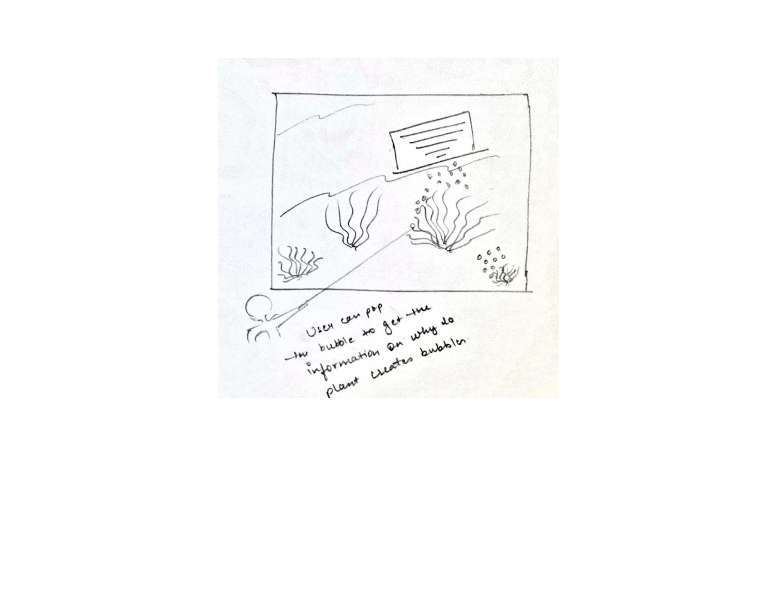 User can pop
the bubble to get the
information on why do
plant creates bubbles